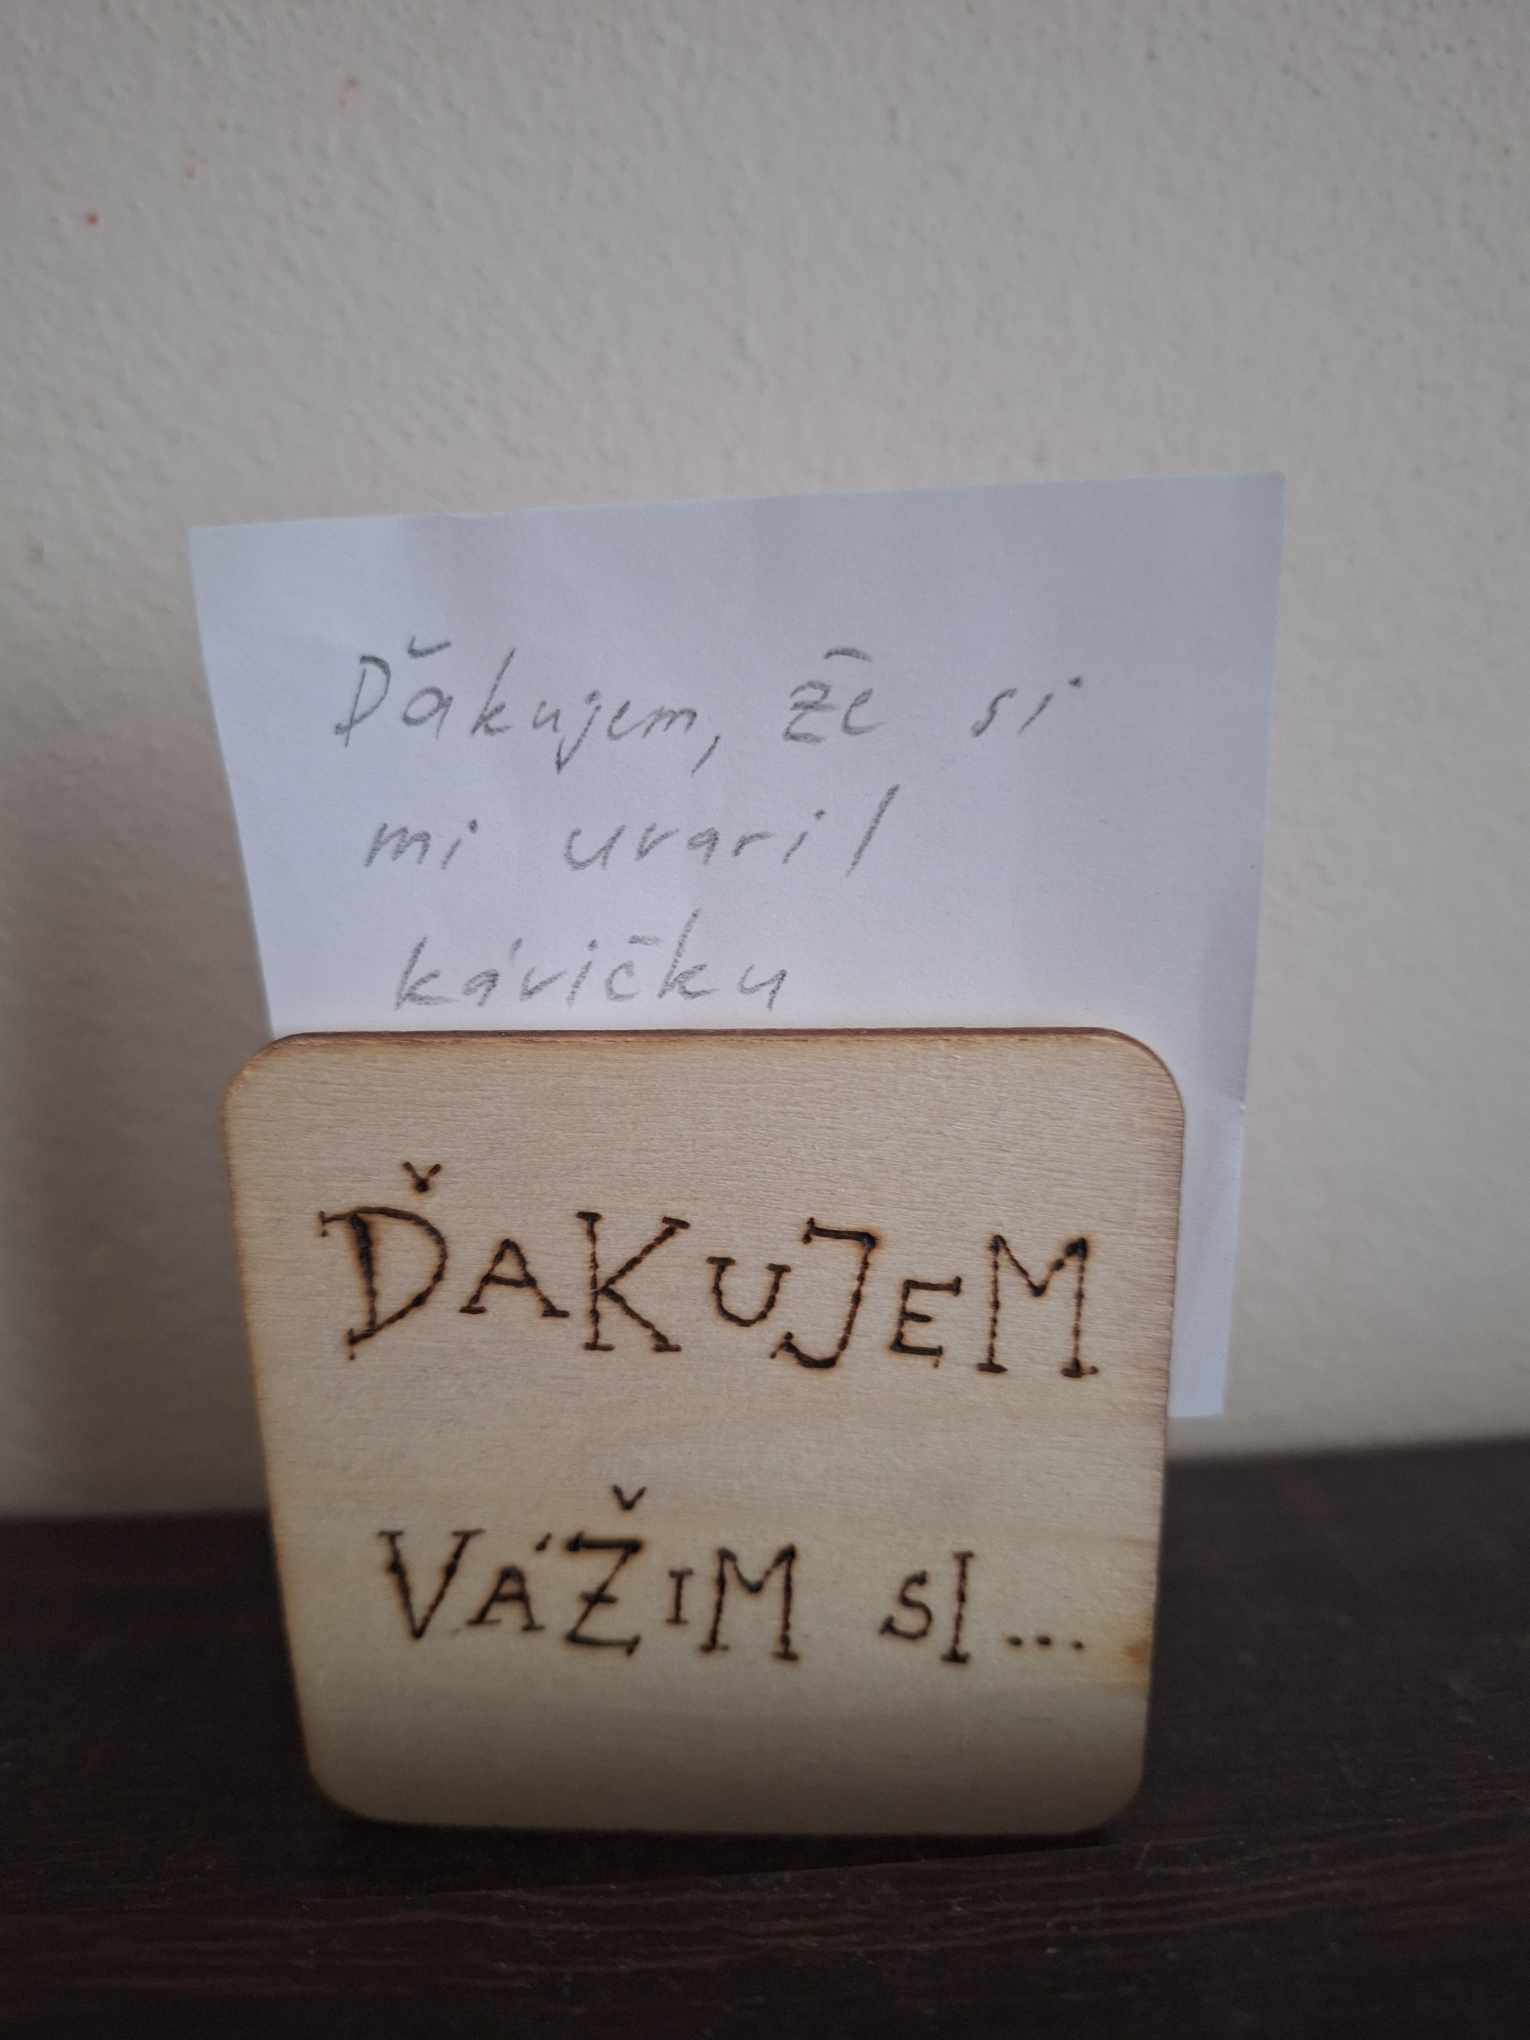 Ďakujem, že si
mi uvaril
kávičku
ĎAKUJEM
VÁŽIM SI...